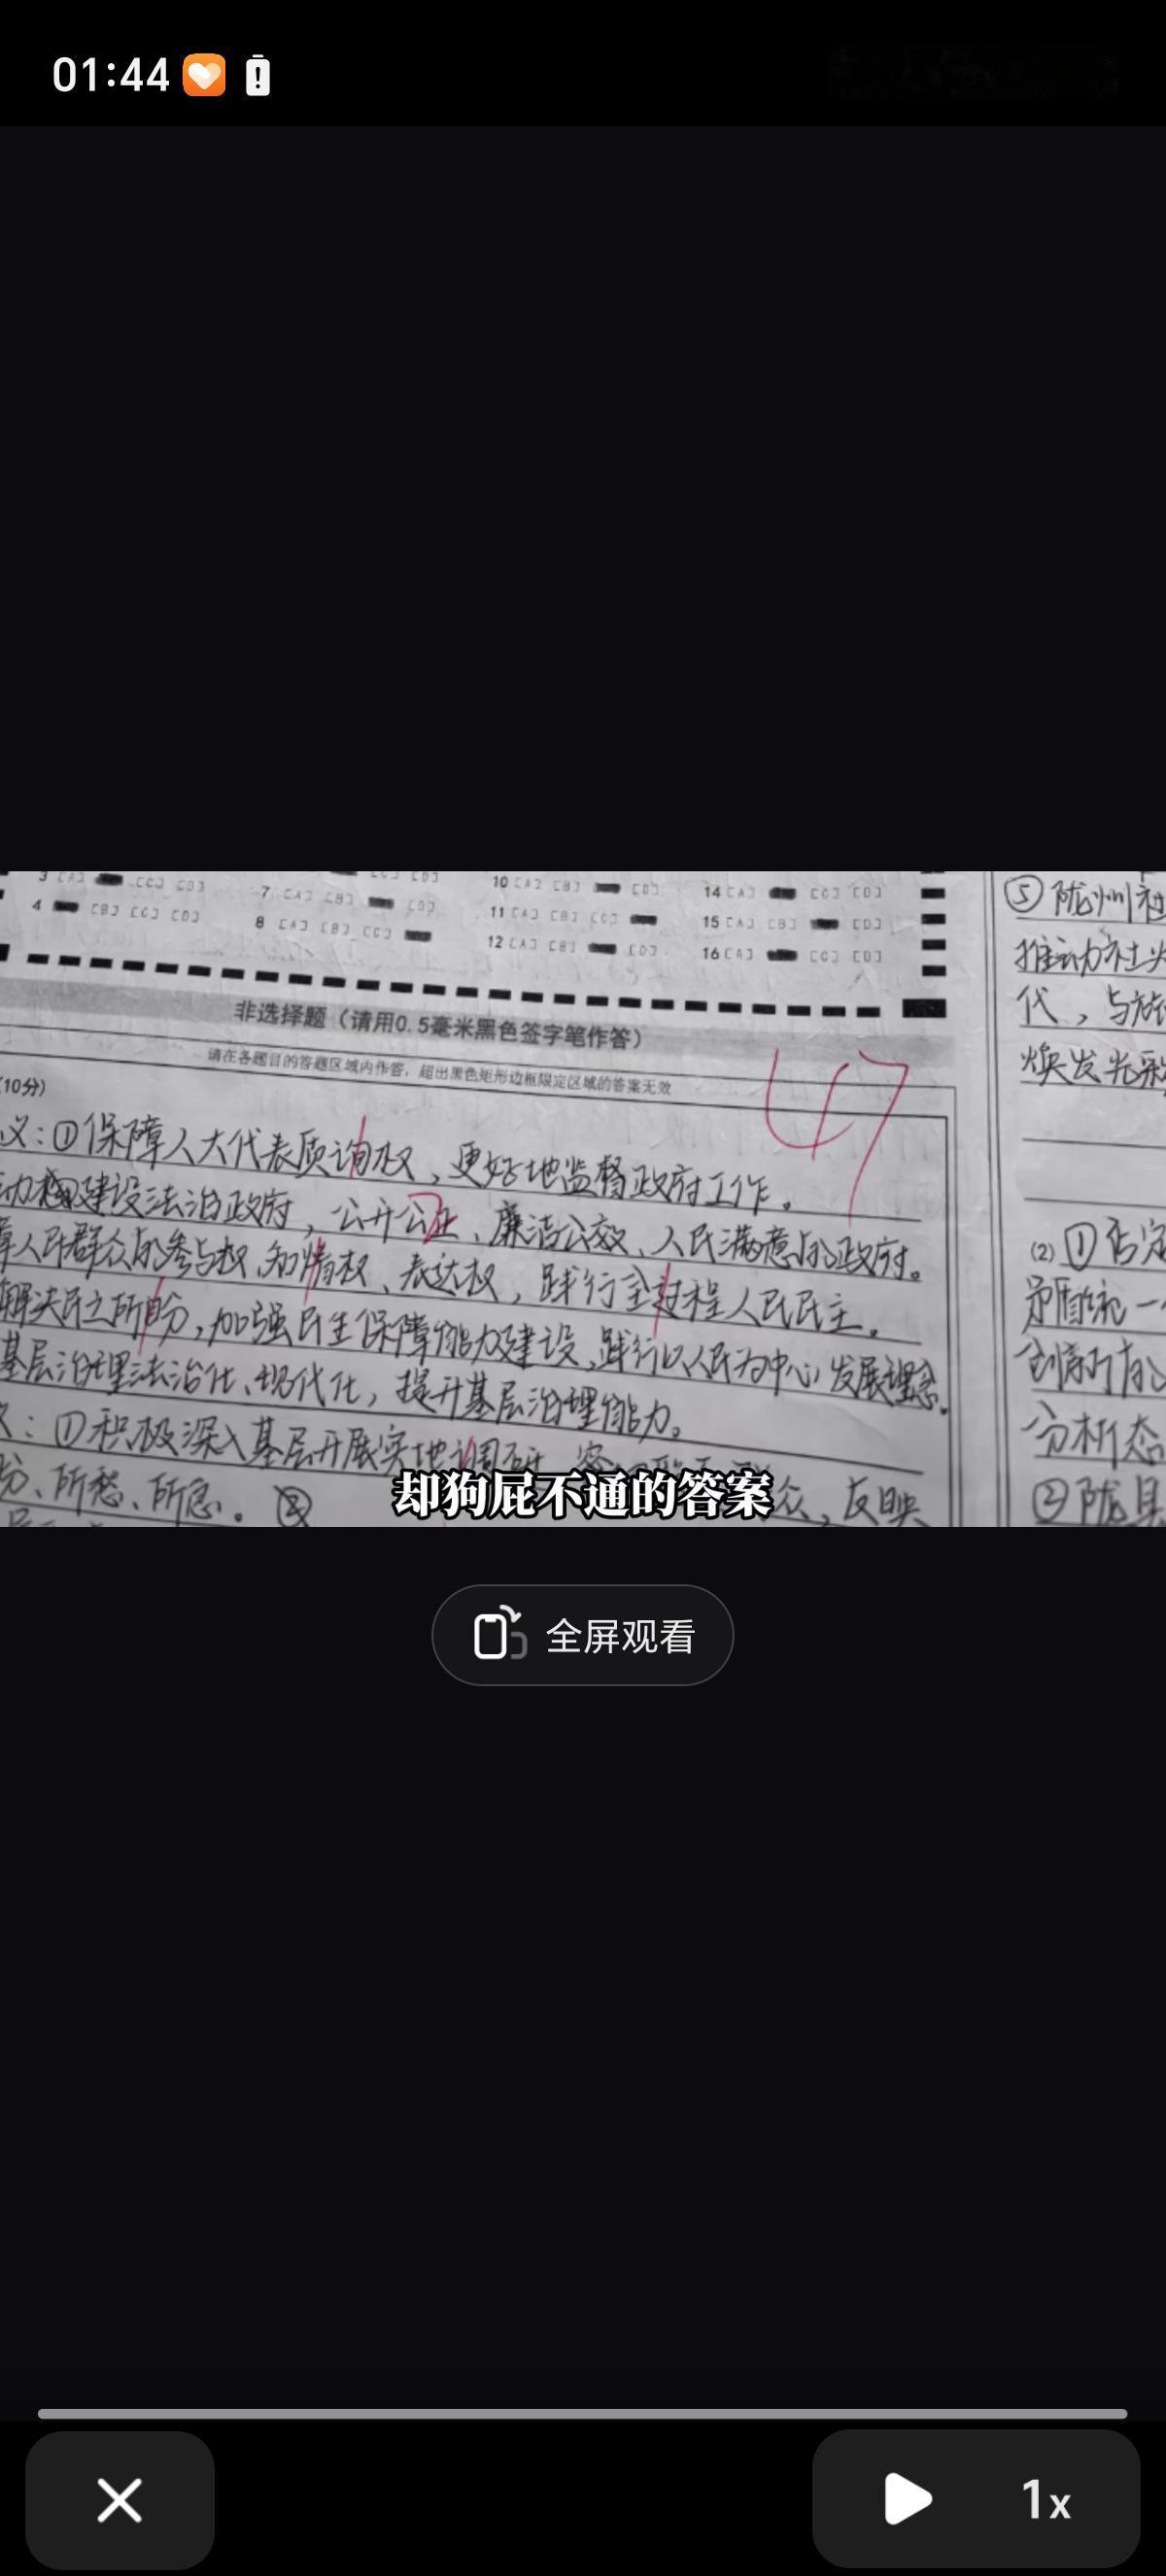 01:44
3 [A] [C] [D]
4 [B] [C] [D]
7 [A] [B] [D]
8 [A] [B] [C]
10 [A] [B] [D]
11 [A] [B] [C]
12 [A] [B] [D]
14 [A] [C] [D]
15 [A] [B] [D]
16 [A] [C] [D]
非选择题（请用0.5毫米黑色签字笔作答）
请在各题目的答题区域内作答，超出黑色矩形边框限定区域的答案无效
(10分)
47
义：①保障人大代表质询权，更好地监督政府工作。
建设法治政府，公开公正、廉洁公效、人民满意的政府。
人民群众的参与权、知情权、表达权，践行全过程人民民主。
解决民之所盼，加强民生保障能力建设，践行以人民为中心发展理念。
基层治理法治化、现代化，提升基层治理能力。
：①积极深入基层开展实地调研
、所愁、所急。②
众，反映
⑤陇州社
推动社火
代，与
焕发光彩
(2)①否定
矛盾统一
创新
分析态
②陇县
却狗屁不通的答案
全屏观看
1x